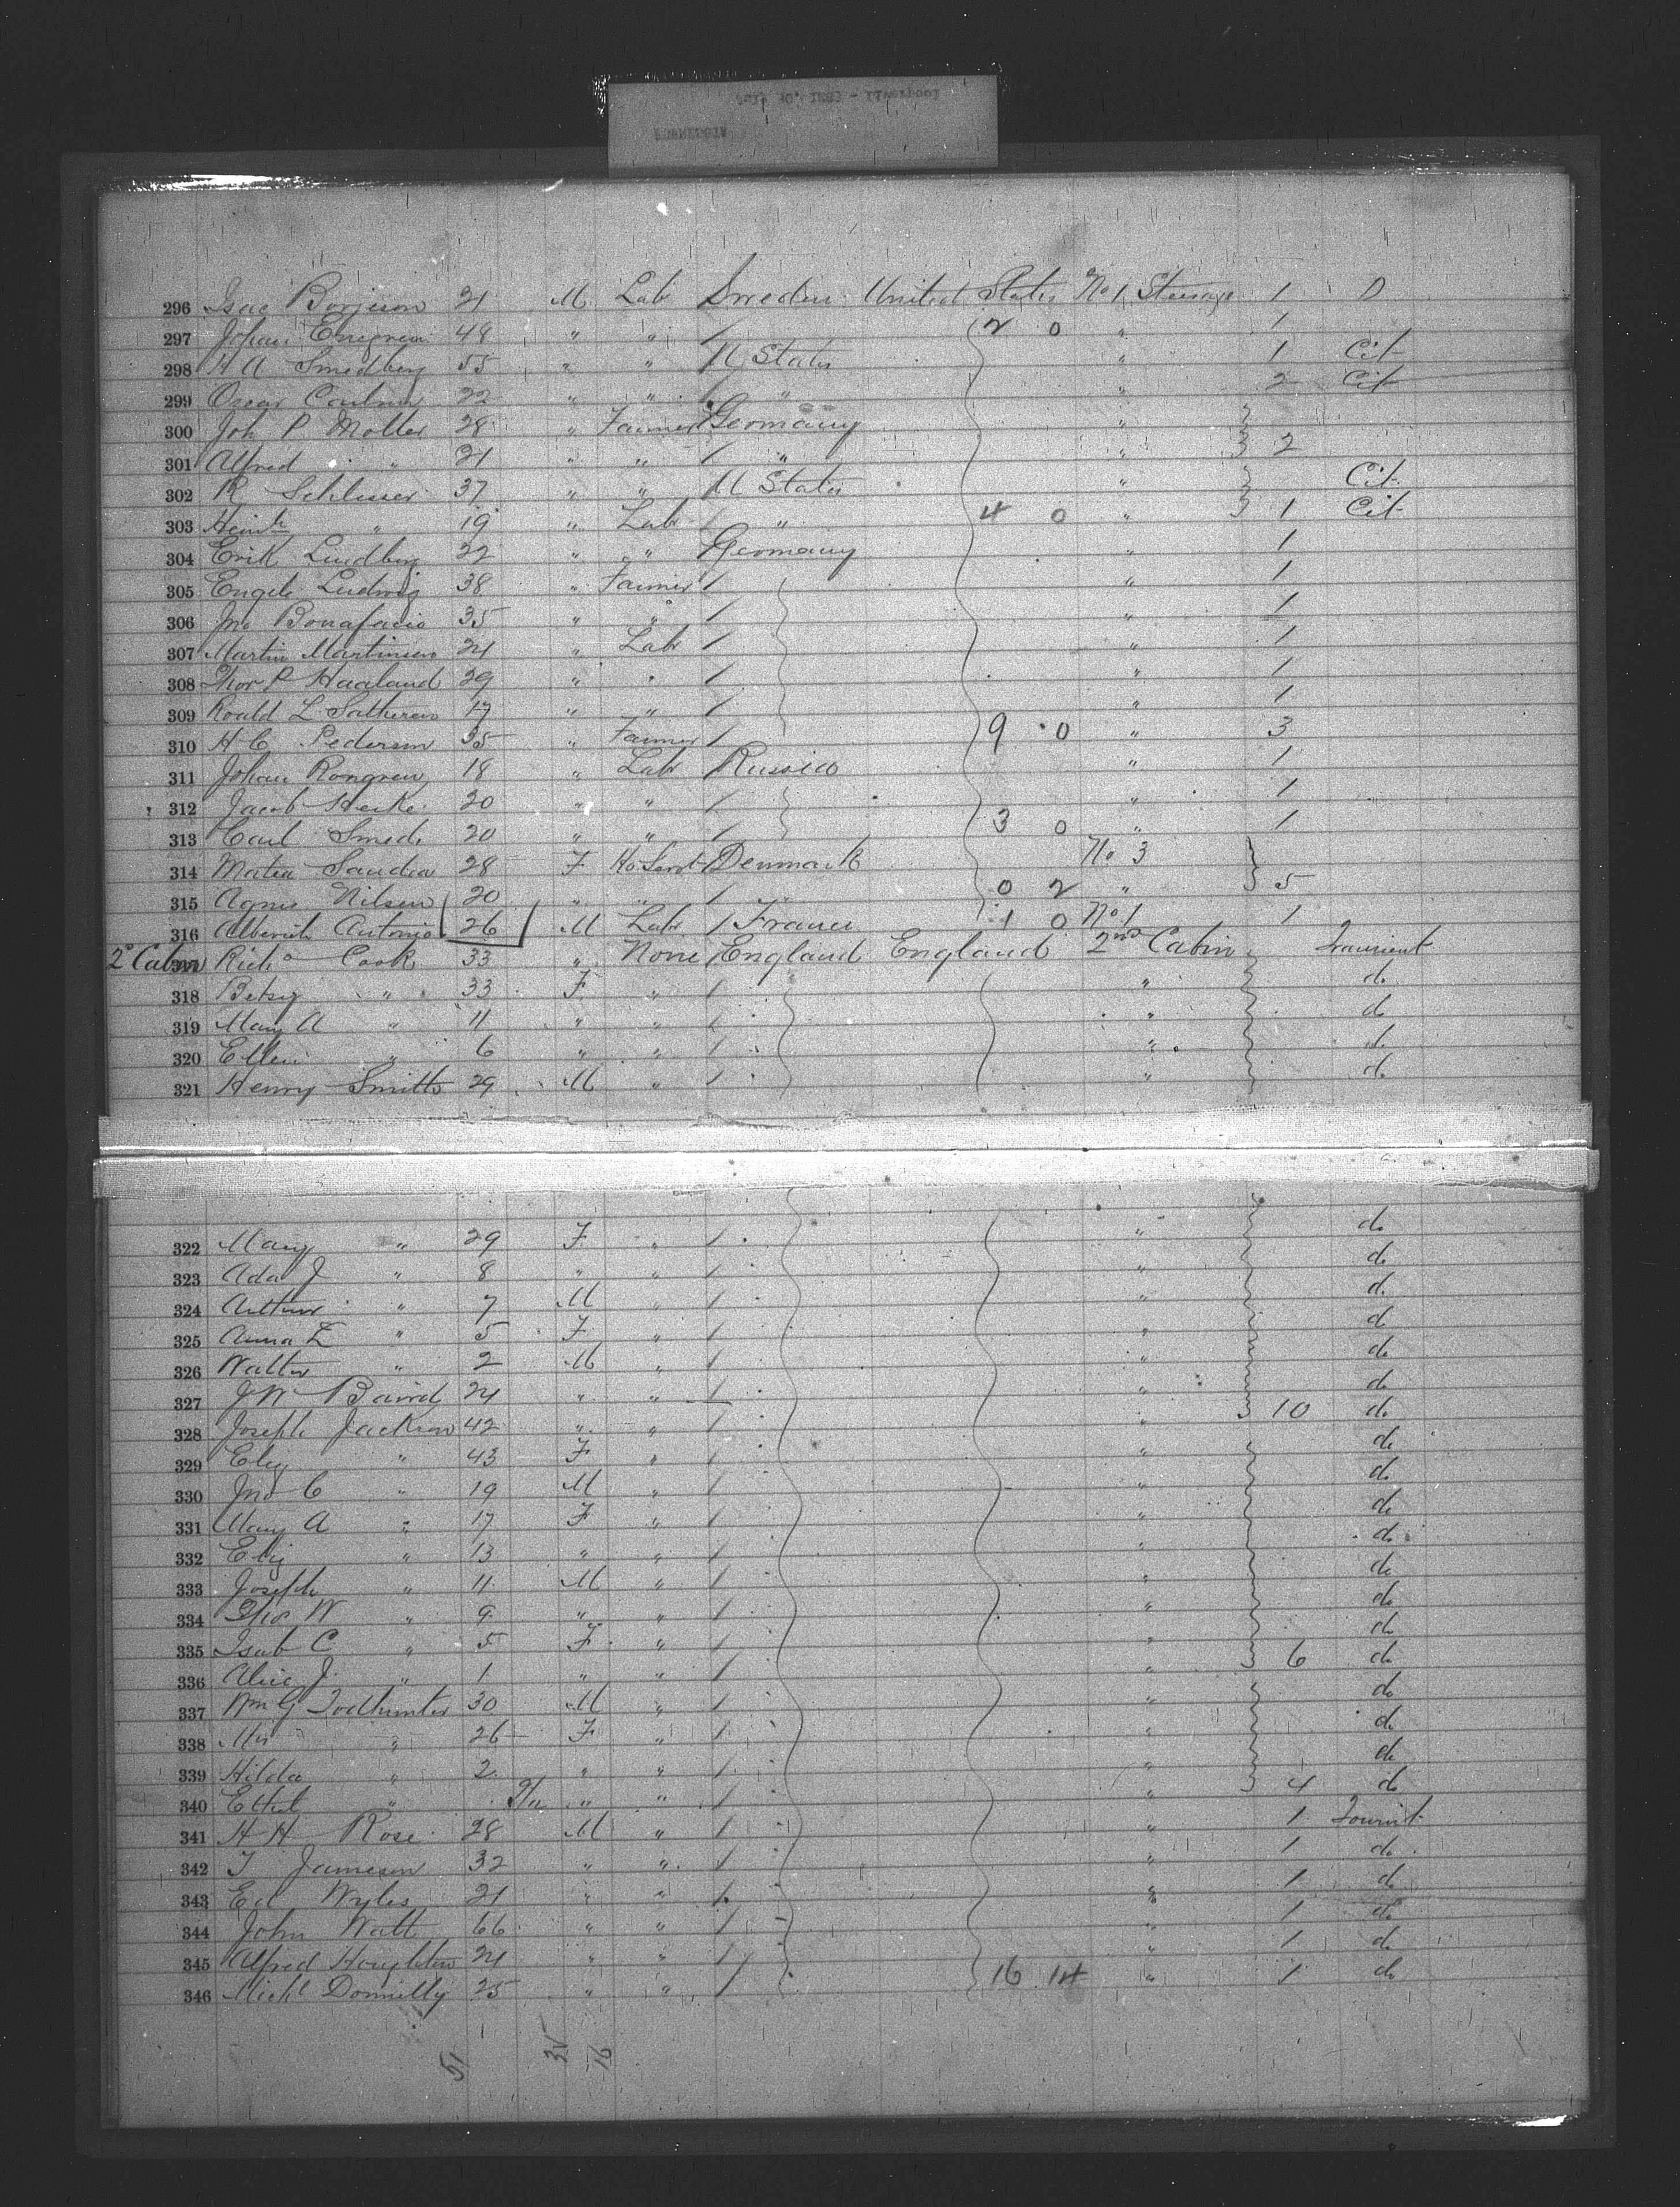 296 Isac Borjeson 21 M Lab Sweden United States No 1 Steerage 1 D
297 Johan Engren 48 " " / 2 0 " 1
298 H A Smedberg 55 " " U States " 1 Cit
299 Oscar 22 " " / " " 2 Cit
300 Joh P Moller 28 " Farmer Germany "
301 Alfred " 21 " " / " " 2
302 R Schlesser 37 " " U States " Cit
303 Heinh " 19 " Lab / " 4 0 " 1 Cit
304 Erik Lindberg 22 " " Germany " 1
305 Engele Ludwig 38 " Farmer / " 1
306 Jno Bonafacio 35 " " / " 1
307 Martin Martinsen 21 " Lab / " 1
308 Thor P Haaland 29 " " / " 1
309 Roald L 17 " " / " 1
310 H C Pedersen 35 " Farmer / 9 0 " 3
311 Johan Rongren 18 " Lab Russia " 1
312 Jacob 20 " " / " 1
313 Carl Smeds 20 " " / 3 0 " 1
314 Matea Sandea 28 F Ho Servt Denmark No 3
315 Agnes Nilsen 20 " " / " 0 2 " 5
316 Antonio 26 M Lab / France 1 0 No 1 1
2º Cabin 317 Richd Cook 33 " None England England 2nd Cabin Transient
318 Betsy " 33 F " / " do
319 Mary A " 11 " " / " do
320 Ellen " 6 " " / " do
321 Henry Smith 29 M " / " do
322 Mary " 29 F " / " do
323 Ada J " 8 " " / " do
324 Arthur " 7 M " / " do
325 Anna E " 5 F " / " do
326 Walter " 2 M " / " do
327 J W Baird 24 " " / " do
328 Joseph Jackson 42 " " / " 10 do
329 Eliz " 43 F " / " do
330 Jno C " 19 M " / " do
331 Mary A " 17 F " / " do
332 Eliz " 13 " " / " do
333 Joseph " 11 M " / " do
334 Thos W " 9 " " / " do
335 Isab C " 5 F " / " do
336 Alice J " 1 " " / " 6 do
337 Wm G Todhunter 30 M " / " do
338 Mrs " 26 F " / " do
339 Hilda " 2 " " / " do
340 Ethel " " " / " 4 do
341 H H Rose 28 M " / " 1 Tourist
342 T Jameson 32 " " / " 1 do
343 Ed Wyles 21 " " / " 1 do
344 John Watt 66 " " / " 1 do
345 Alfred Houghton 24 " " / " 1 do
346 Michl Donnelly 25 " " / 16 14 " 1 do
51 35 16